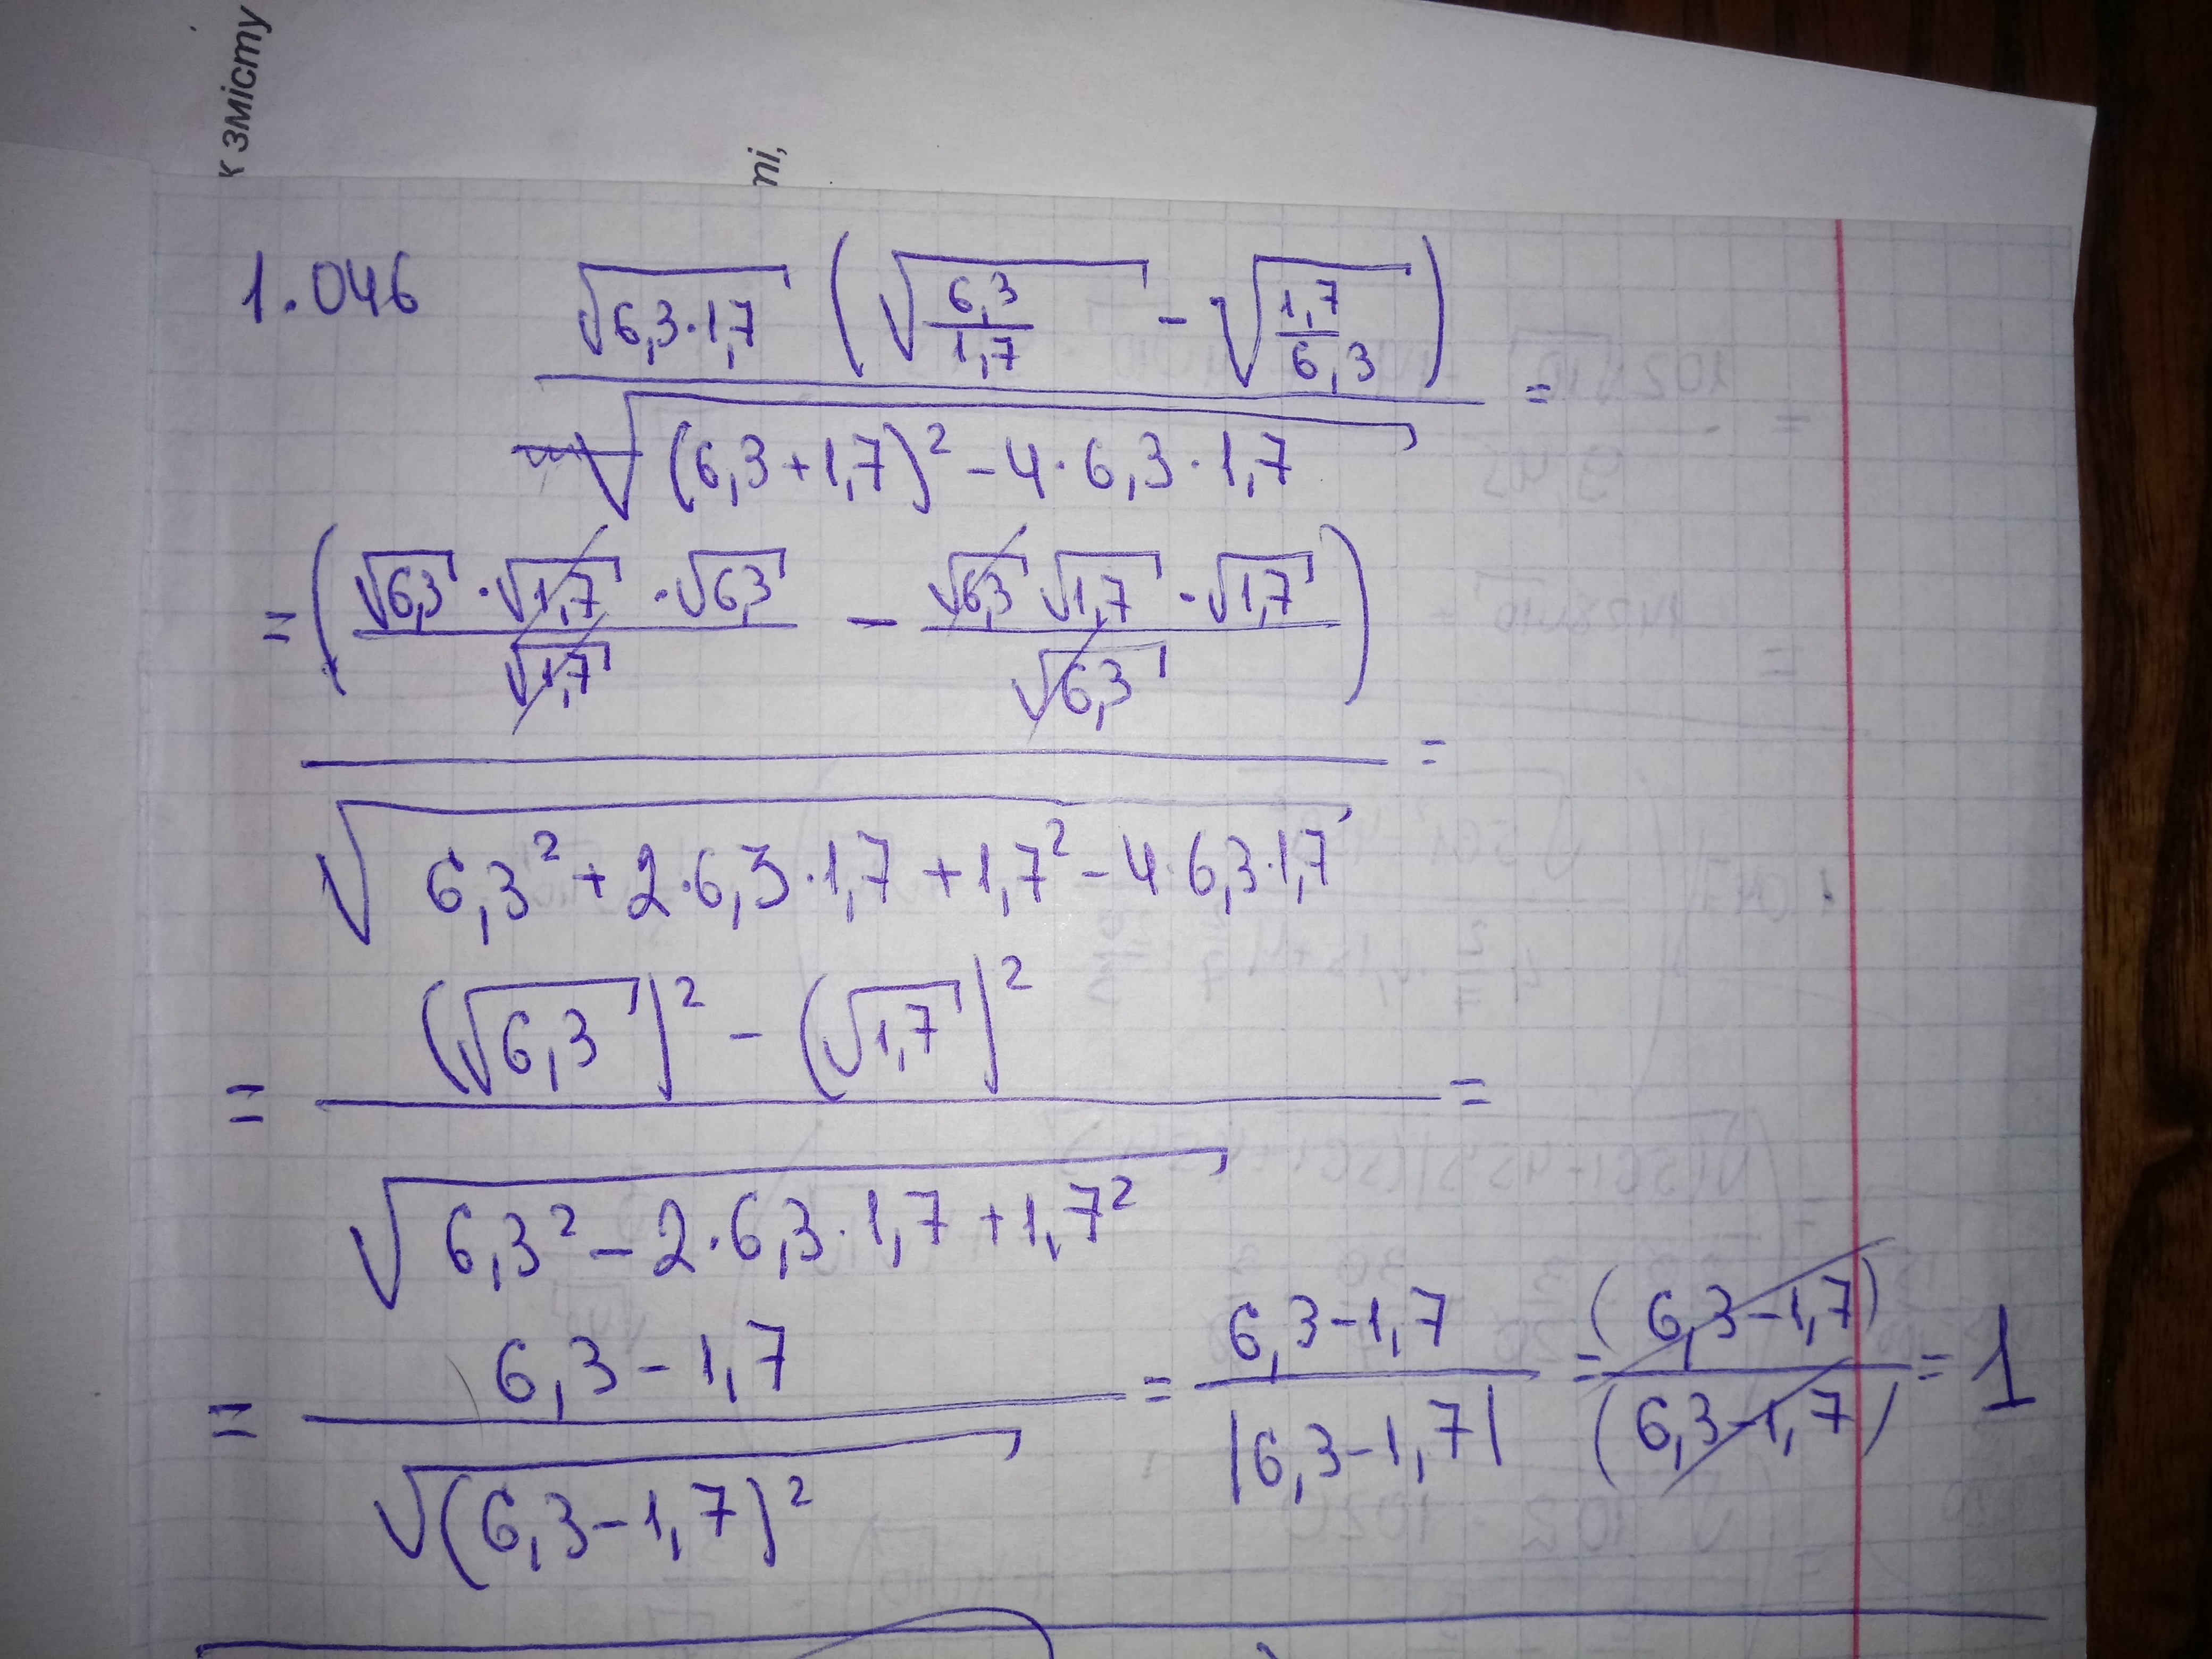 к змісту
ті,
1.046 √(6,3·1,7) (√(6,3/1,7) - √(1,7/6,3)) / √((6,3+1,7)² - 4·6,3·1,7) =
= (√6,3·√1,7·√6,3 / √1,7 - √6,3 √1,7·√1,7 / √6,3) / √(6,3² + 2·6,3·1,7 + 1,7² - 4·6,3·1,7) =
= ((√6,3)² - (√1,7)²) / √(6,3² - 2·6,3·1,7 + 1,7²) =
= (6,3 - 1,7) / √((6,3-1,7)²) = (6,3-1,7) / |6,3-1,7| = (6,3-1,7) / (6,3-1,7) = 1